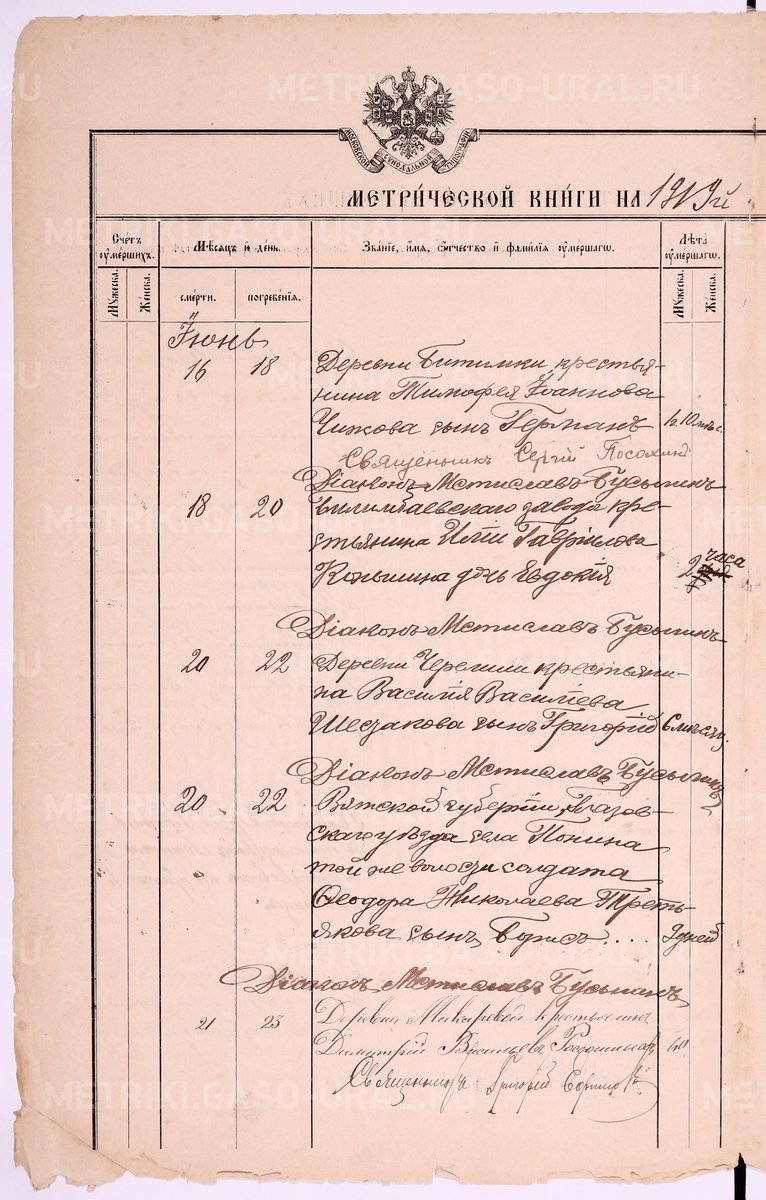 METRIKI.GASO-URAL.RU
МОСКОВСКОЙ СѴНОДАЛЬНОЙ ТИПОГРАФІИ
МЕТРИ́ЧЕСКОЙ КНИ́ГИ НА 1919й
Сче́тъ ᲂумершихъ.
Мѣ́сяцъ и҆ де́нь.
Зва́ніе, и҆́мя, ѻ҆́тчество и҆ фами́лія ᲂуме́ршагѡ.
Лѣ́та ᲂуме́ршагѡ.
Мꙋ́жеска.
Же́нска.
сме́рти.
погребе́нія.
Мꙋ́жеска.
Же́нска.
Іюнь
16 18 Деревни Битимки крестья-
нина Тимофея Іоаннова
Чижова сынъ Германъ
Священникъ Сергій Посохинъ
Діаконъ Мстиславъ Бусыгинъ
18 20 Билимбаевскаго завода кре-
стьянина Иліи Гавріилова
Коньшина дочь Евдокія 2 часа
Діаконъ Мстиславъ Бусыгинъ
20 22 Деревни Черемши крестьяни-
на Василія Василіева
Шестакова сынъ Григорій 6 мѣсяц.
Діаконъ Мстиславъ Бусыгинъ
20 22 Вятской губерніи, Глазов-
скаго уѣзда села Понина
той же волости солдата
Ѳеодора Николаева Треть-
якова сынъ Борисъ.... 9 дней
Діаконъ Мстиславъ Бусыгинъ
21 23 Деревни Макаровой крестьянинъ
Димитрій Васильевъ 60
Священникъ Григорій Ефимовъ